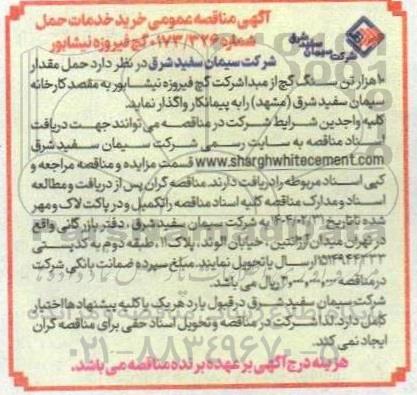 آگهی مناقصه عمومی خرید خدمات حمل
شماره ۰۱۷۳/۳۷۶ گچ فیروزه نیشابور
شرکت سیمان سفید شرق
شرکت سیمان سفید شرق در نظر دارد حمل مقدار
۱۰ هزار تن سنگ گچ از مبدا شرکت گچ فیروزه نیشابور به مقصد کارخانه
سیمان سفید شرق (مشهد) را به پیمانکار واگذار نماید.
کلیه واجدین شرایط شرکت در مناقصه می توانند جهت دریافت
اسناد مناقصه به سایت رسمی شرکت سیمان سفید شرق
www.sharghwhitecement.com قسمت مزایده و مناقصه مراجعه و
کپی اسناد مربوطه را دریافت دارند. مناقصه گران پس از دریافت و مطالعه
اسناد و مدارک مناقصه کلیه اسناد مناقصه را تکمیل و در پاکت لاک و مهر
شده تا تاریخ ۱۴۰۴/۰۲/۳۱ به شرکت سیمان سفید شرق، دفتر بازرگانی واقع
در تهران میدان آرژانتین، خیابان الوند، پلاک ۱۱، طبقه دوم به کدپستی
۱۵۱۴۹۴۴۳۳۳ ارسال یا تحویل نمایند. مبلغ سپرده ضمانت بانکی شرکت
در مناقصه ریال می باشد.
شرکت سیمان سفید شرق در قبول یا رد هر یک یا کلیه پیشنهادها اختیار
کامل دارد. لذا شرکت در مناقصه و تحویل اسناد حقی برای مناقصه گران
ایجاد نمی کند.
۰۲۱-۸۸۳۴۹۶۷۰-۵
هزینه درج آگهی بر عهده برنده مناقصه می باشد.